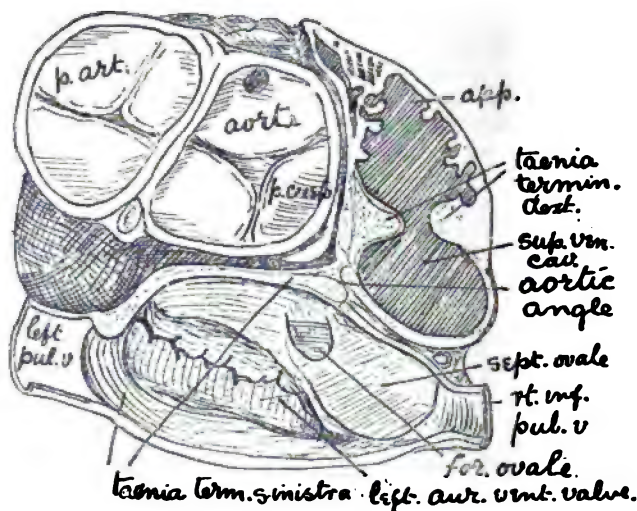 p. art.
aorta
p. cusp
app.
taenia
termin.
dext.
sup. ven.
cav
aortic
angle
left
pul. v
sept. ovale
rt. inf.
pul. v
for. ovale.
taenia term. sinistra
left. aur. vent. valve.